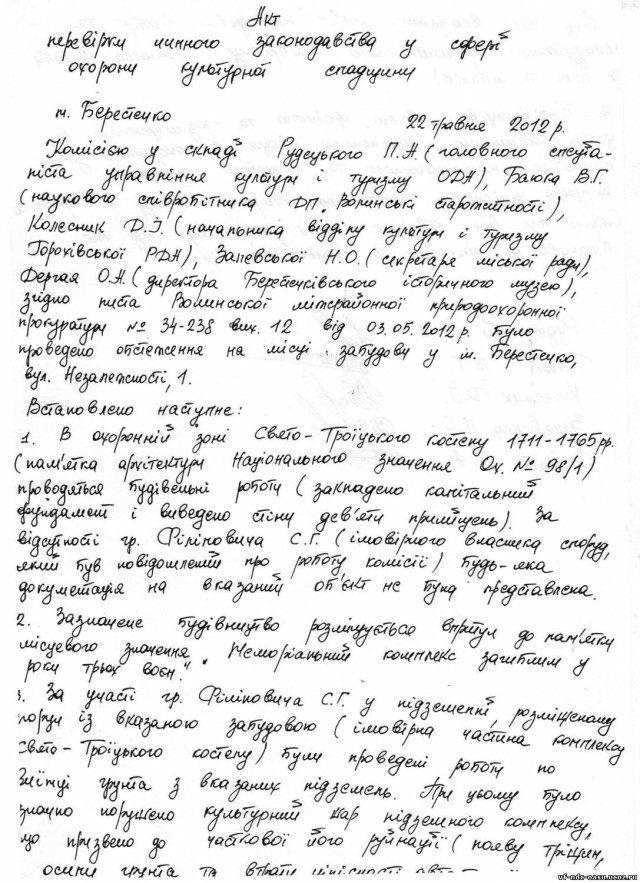 Акт
перевірки чинного законодавства у сфері
охорони культурної спадщини
м. Берестечко 22 травня 2012 р.
Комісією у складі Рудецького П.А. (головного спеціа-
ліста управління культури і туризму ОДА), Баюка В.Г.
(наукового співробітника ДП "Волинські старожитності),
Колесник Д.І. (начальника відділу культури і туризму
Горохівської РДА), Залевської Н.О. (секретаря міської ради),
Дергая О.А. (директора Берестечківського історичного музею),
згідно листа Волинської міжрайонної природоохоронної
прокуратури № 34-238 вих. 12 від 03.05.2012 р. було
проведено обстеження на місці забудови у м. Берестечко,
вул. Незалежності, 1.
Встановлено наступне:
1. В охоронній зоні Свято-Троїцького костелу 1711-1765 рр.
(пам'ятка архітектури Національного значення Ох. № 98/1)
проводяться будівельні роботи (закладено капітальний
фундамент і виведено стіни дев'яти приміщень). За
відсутності гр. Філіповича С.Г. (імовірного власника споруд,
який був повідомлений про роботу комісії) будь-яка
документація на вказаний об'єкт не була представлена.
2. Зазначене будівництво розміщується впритул до пам'ятки
місцевого значення "Меморіальний комплекс загиблим у
роки трьох воєн".
3. За участі гр. Філіповича С.Г. у підземеллі, розміщеному
поруч із вказаною забудовою (імовірна частина комплексу
Свято-Троїцького костелу) були проведені роботи по
виїмці грунта з вказаних підземель. При цьому було
значно порушено культурний шар підземного комплексу,
що призвело до часткової його руйнації (появу тріщин,
осипи грунта та втрати цілісності
vf-nda-nasu.ucoz.ru